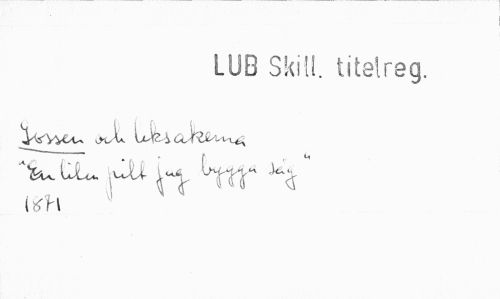 LUB Skill. titelreg.
Gossen och leksakerna
"En liten pilt jag bygga såg"
1871